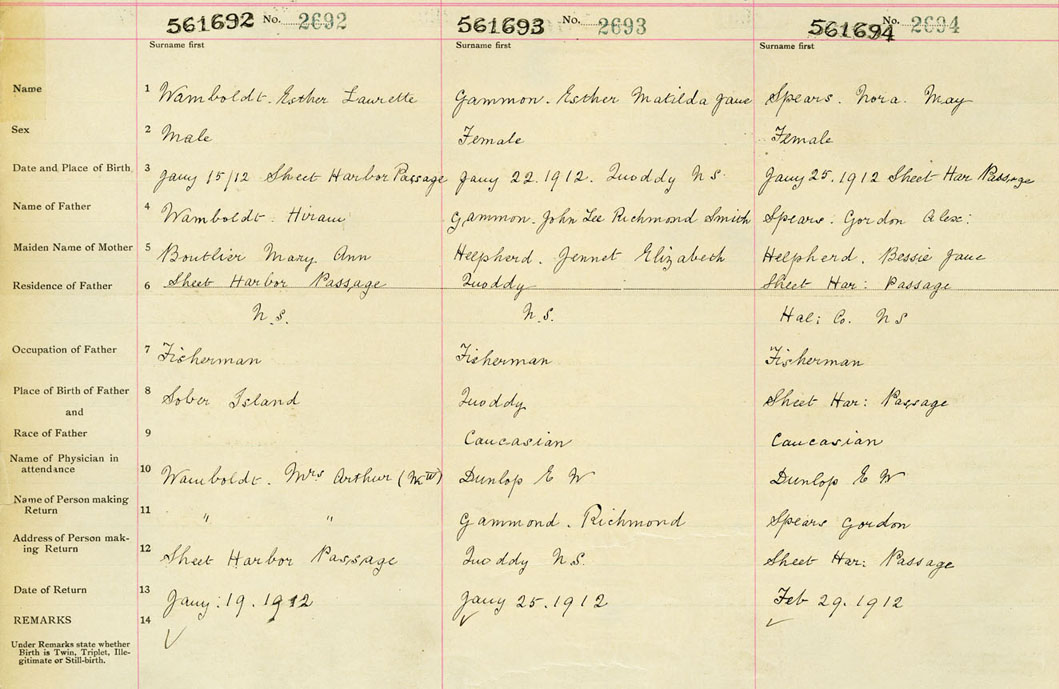 561692 No. 2692 561693 No. 2693 561694 No. 2694
Surname first Surname first Surname first
Name 1 Wamboldt. Esther Laurette Gammon. Esther Matilda Jane Spears. Nora. May
Sex 2 Male Female Female
Date and Place of Birth 3 Jany 15/12 Sheet Harbor Passage Jany 22. 1912. Quoddy N S. Jany 25. 1912 Sheet Har Passage
Name of Father 4 Wamboldt. Hiram Gammon. John Lee Richmond Smith Spears. Gordon Alex:
Maiden Name of Mother 5 Boutlier Mary Ann Helpherd. Jennet Elizabeth Helpherd. Bessie Jane
Residence of Father 6 Sheet Harbor Passage Quoddy Sheet Har: Passage
N.S. N.S. Hal: Co. N S
Occupation of Father 7 Fisherman Fisherman Fisherman
Place of Birth of Father 8 Sober Island Quoddy Sheet Har: Passage
and
Race of Father 9 Caucasian Caucasian
Name of Physician in
attendance 10 Wamboldt. Mrs Arthur Dunlop E W Dunlop E W
Name of Person making
Return 11 " " Gammond. Richmond Spears Gordon
Address of Person mak-
ing Return 12 Sheet Harbor Passage Quoddy N.S. Sheet Har: Passage
Date of Return 13 Jany: 19. 1912 Jany 25. 1912 Feb 29. 1912
REMARKS 14
Under Remarks state whether
Birth is Twin, Triplet, Ille-
gitimate or Still-birth.